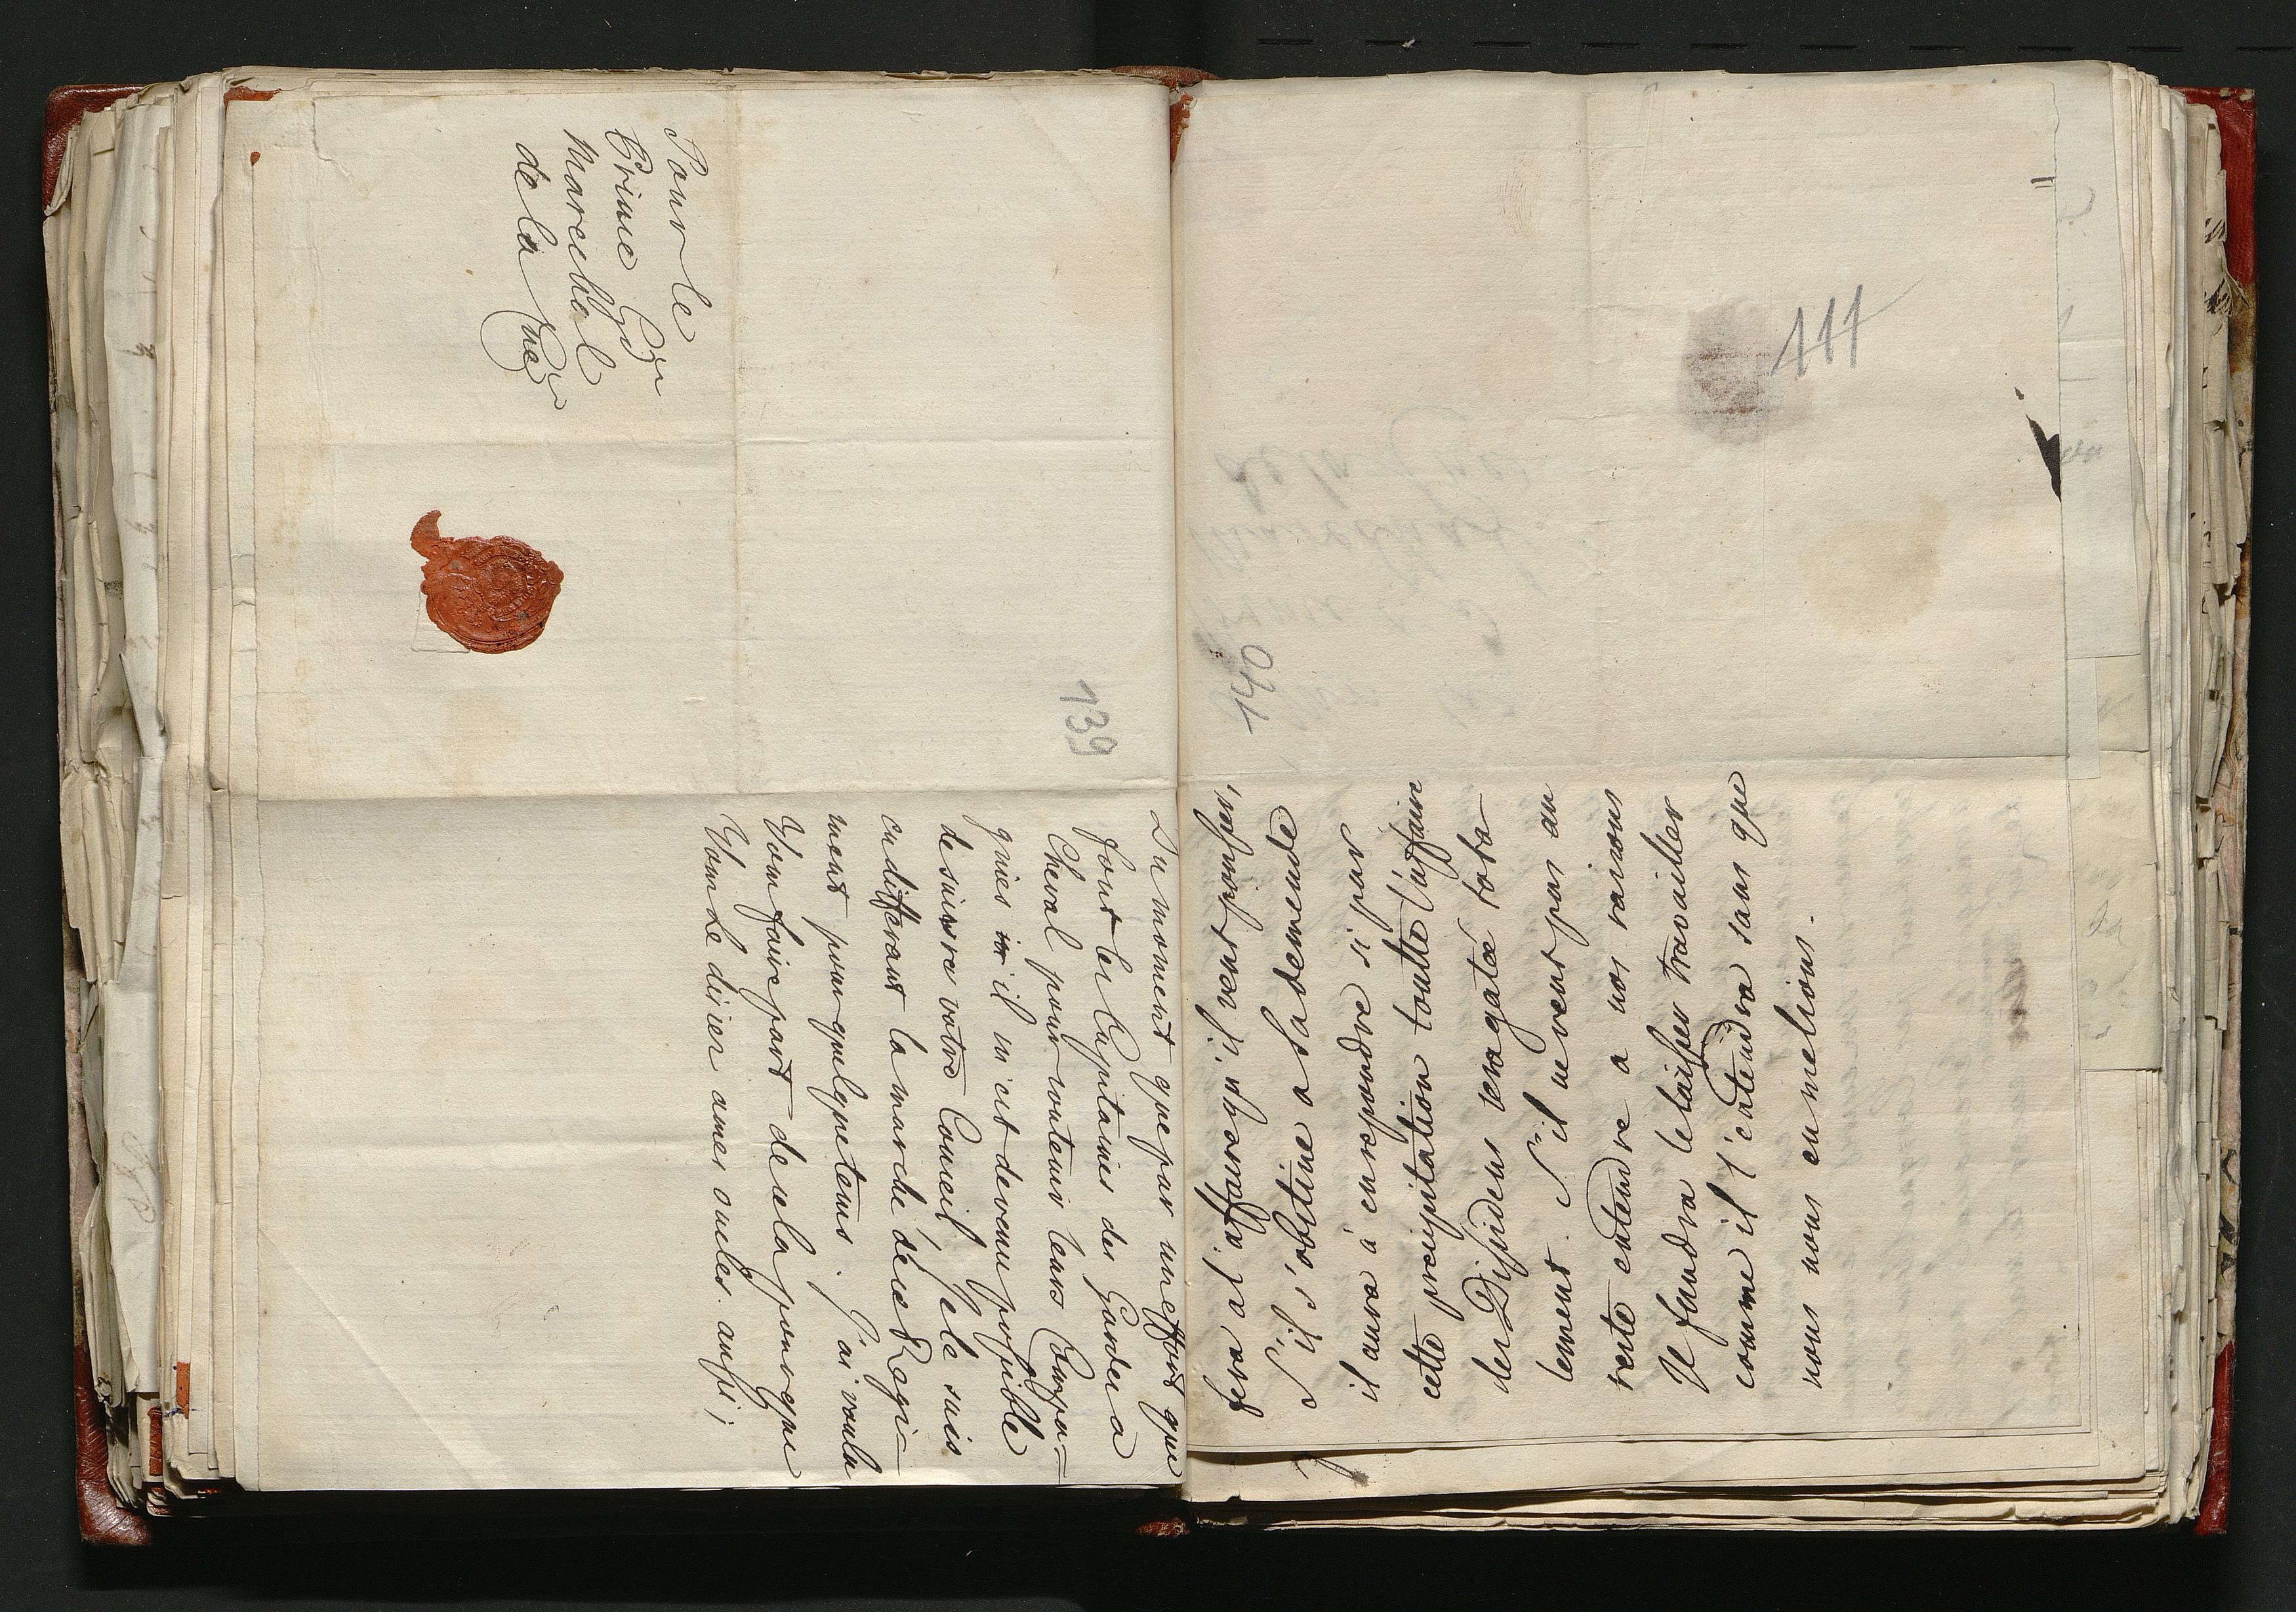 Pour le
Prince Gñr
Marechal
de la Cne
139
Du moment que par un effort que
font les Capitaines des Gardes a
Cheval pour soutenir leurs Compa=
gnies il m'est devenu possible
de suivre votre Conseil, Je le suis
en differant la marche de ce Regi=
ment pour quelque tems. J'ai voulu
Vous faire part de cela pour que
Vous le disiez a mes oncles aussi;
111
140
fera al'affaire qu'il veut pousser,
S'il s'obstine a Sa demende
il aura à en repondre si par
cette precipitation toutte l'affaire
des Dissidens sera gatée tota
lement. S'il ne veut pas au
reste entendre a nos raisons
Il faudra le laisser travailler
comme il l'entendra sans que
nous nous en melions.